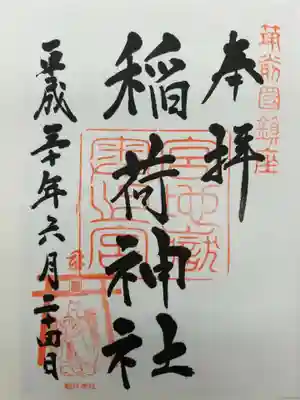 筑前國鎮座
奉拝
宮地嶽
奥之宮
稲荷神社
平成三十年六月二十四日